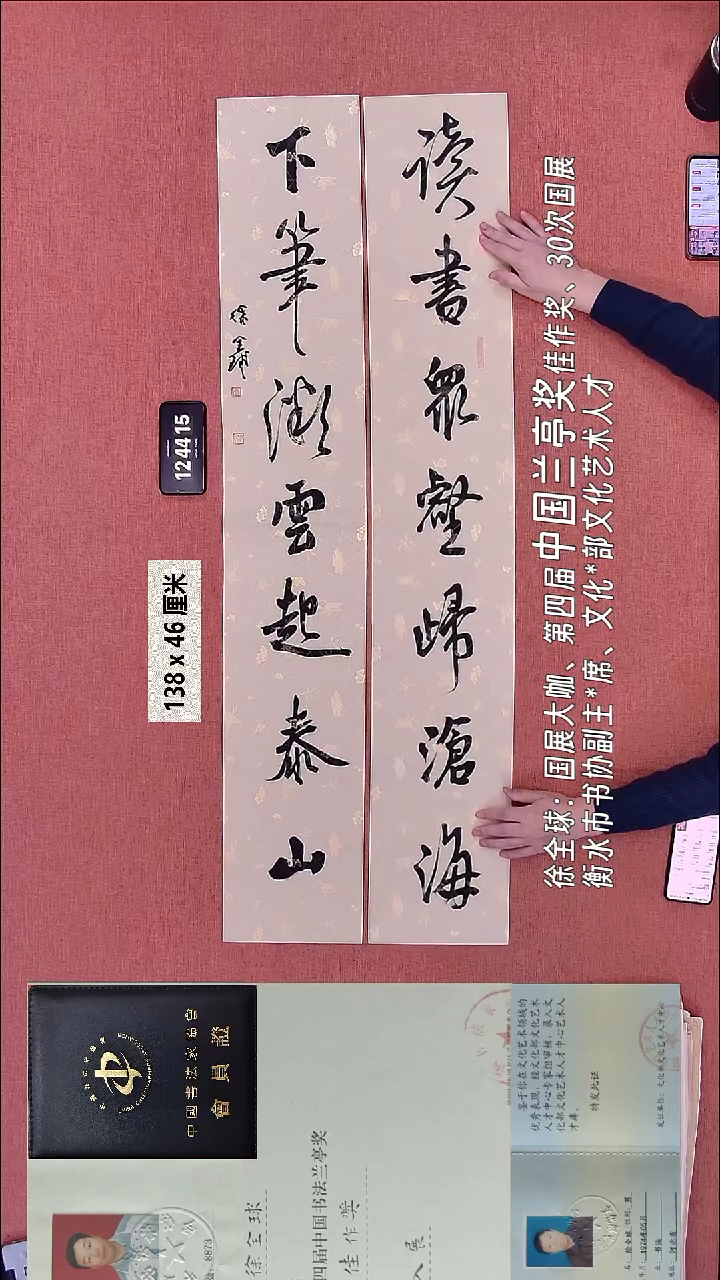 读書眾壑歸滄海
下筆微雲起泰山
徐全球
徐全球：国展大咖、第四届中国兰亭奖佳作奖、30次国展
衡水市书协副主*席、文化*部文化艺术人才
124415
138 x 46 厘米
中國書法家協會
會員證
8873
徐全球
四届中国书法兰亭奖
佳作奖
入展
鉴于你在文化艺术领域的
优秀表现，经文化部文化艺术
人才中心专家组审核，录入文
化部文化艺术人才中心艺术人
才库。
特发此证
发证单位：文化部文化艺术人才中心